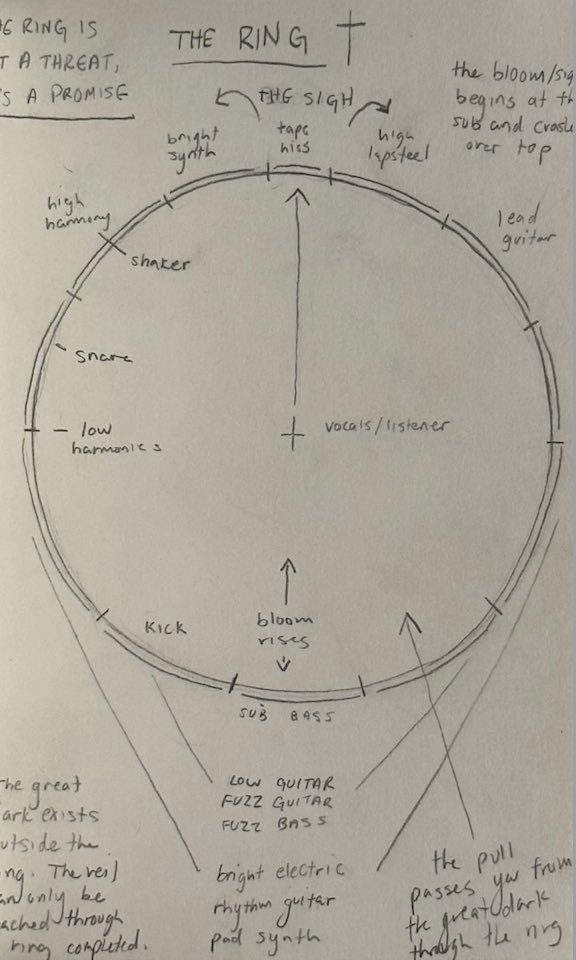 HE RING IS
T A THREAT,
'S A PROMISE
THE RING
THE SIGH
the bloom/sig
begins at th
sub and crash
over top
bright
synth
tape
hiss
high
lapsteel
high
harmony
shaker
lead
guitar
snare
low
harmonies
vocals/listener
KICK
bloom
rises
SUB BASS
LOW GUITAR
FUZZ GUITAR
FUZZ BASS
bright electric
rhythm guitar
pad synth
he great
ark exists
utside the
ng. The veil
an only be
ached through
ring completed.
the pull
passes you from
the great dark
through the ring